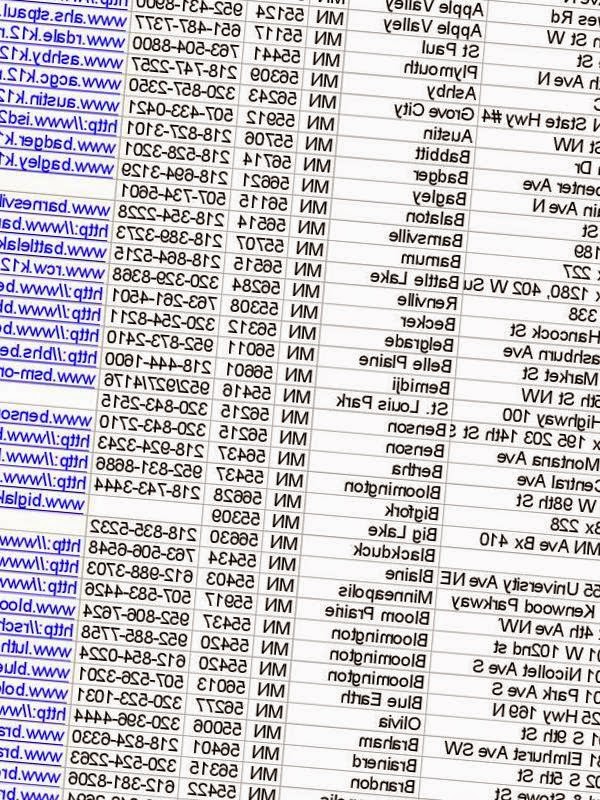 ves Rd Apple Valley
St W Apple Valley MN 55124 952-431-8900 http://
St St Paul MN 55117 651-487-7377 www.ahs.stpaul.
th Ave N Plymouth MN 55441 763-504-8800 www.rdale.k12.
C Ashby MN 56309 218-747-2257 www.ashby.k12.
N State Hwy #4 Grove City MN 56243 320-857-2350 www.acgc.k12.
St NW Austin MN 55912 507-433-0421 www.austin.k12
Dr Babbitt MN 55706 218-827-3101 http://www.isd2
penter Ave Badger MN 56714 218-528-3201 www.badger.k1
ain Ave N Bagley MN 56621 218-694-3129 www.bagley.k1
St Balaton MN 56115 507-734-5601
189 Barnesville MN 56514 218-354-2228 www.barnesvil
x 227 Barnum MN 55707 218-389-3273 http://www.bar
x 1280, 402 W Su Battle Lake MN 56515 218-864-5215 www.battlelak
338 Renville MN 56284 320-329-8368 www.rcw.k12
Hancock St Becker MN 55308 763-261-4501 http://www.be
ashburn Ave Belgrade MN 56312 320-254-8211 http://www.bb
Market St Belle Plaine MN 56011 952-873-2410 http://www.be
5th St NW Bemidji MN 56601 218-444-1600 http://bhs.be
Highway 100 St. Louis Park MN 55416 952/927/4176 www.bsm-on
x 195 203 14th St S Benson MN 56215 320-843-2515
Montana Ave Benson MN 56215 320-843-2710 www.benson
Central Ave Bertha MN 56437 218-924-3243 http://www.b
W 98th St Bloomington MN 55437 952-831-8686 http://www.
Bx 228 Bigfork MN 56628 218-743-3444 http://www.
MN Ave Bx 410 Big Lake MN 55309 www.biglak
Blackduck MN 56630 218-835-5232
55 University Ave NE Blaine MN 55434 763-506-6548 http://www
Kenwood Parkway Minneapolis MN 55403 612-988-3703 http://www.
4th Ave NW Bloom Prairie MN 55917 507-583-4426 http://www.
01 W 102nd st Bloomington MN 55437 952-806-7624 www.bloo
01 Nicollet Ave S Bloomington MN 55420 952-885-7758 http://rsch
01 Park Ave S Bloomington MN 55420 612-854-0224 www.luth
25 Hwy 169 N Blue Earth MN 56013 507-526-3201 www.blue
01 S 9th St Olivia MN 56277 320-523-1031 www.bold
31 Elmhurst Ave SW Braham MN 55006 320-396-4444 http://w
02 S 5th St Brainerd MN 56401 218-824-6330 www.bra
& Stowe St Brandon MN 56315 320-524-2263 www.bra
MN 55422 612-381-8206 www.bre